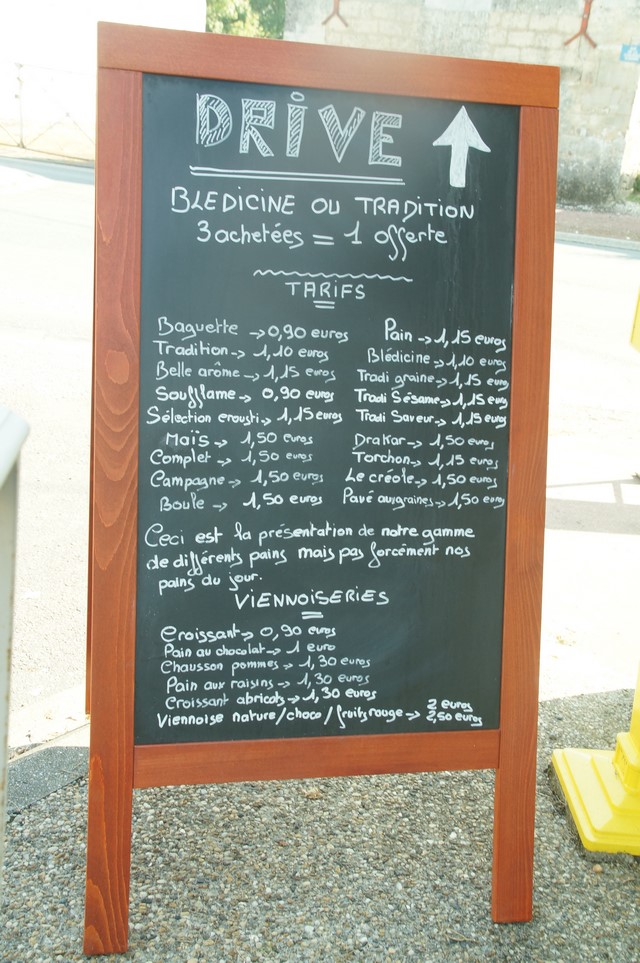 DRIVE
BLEDICINE OU TRADITION
3 achetées = 1 offerte
TARIFS
Baguette -> 0,90 euros
Tradition -> 1,10 euros
Belle arôme -> 1,15 euros
Soufflame -> 0,90 euros
Sélection crousti -> 1,15 euros
Maïs -> 1,50 euros
Complet -> 1,50 euros
Campagne -> 1,50 euros
Boule -> 1,50 euros
Pain -> 1,15 euros
Blédicine -> 1,10 euros
Tradi graine -> 1,15 euros
Tradi Sésame -> 1,15 euros
Tradi Saveur -> 1,15 euros
Drakar -> 1,50 euros
Torchon -> 1,15 euros
Le créole -> 1,50 euros
Pavé aux graines -> 1,50 euros
Ceci est la présentation de notre gamme
de différents pains mais pas forcément nos
pains du jour.
VIENNOISERIES
Croissant -> 0,90 euros
Pain au chocolat -> 1 euro
Chausson pommes -> 1,30 euros
Pain aux raisins -> 1,30 euros
Croissant abricots -> 1,30 euros
Viennoise nature/choco/fruits rouge -> 2 euros
2,50 euros